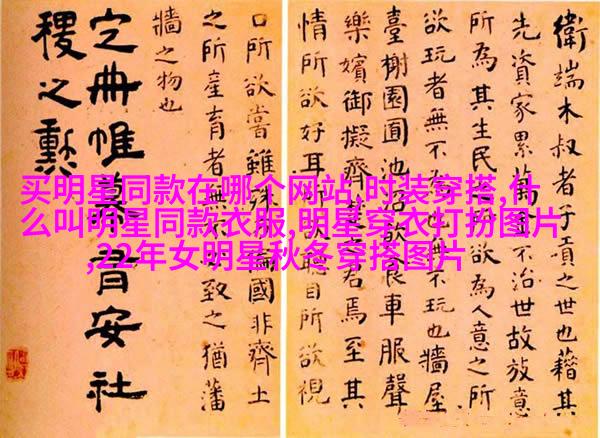 衛端木叔者子貢之世也藉其
先資家累萬金不治世故放意
所為其生民欲為人意之所
欲玩者無不為也無不玩也牆屋
臺榭園囿池沼飲食車服聲
樂嬪御擬齊楚之君焉至其
情所欲好耳所欲聽目所欲視
口所欲嘗雖殊偏國非齊土
之所產育者無不致之猶藩
牆之物也
定冊帷幕有安社
稷之勲
买明星同款在哪个网站,时装穿搭,什
么叫明星同款衣服,明星穿衣打扮图片
,22年女明星秋冬穿搭图片